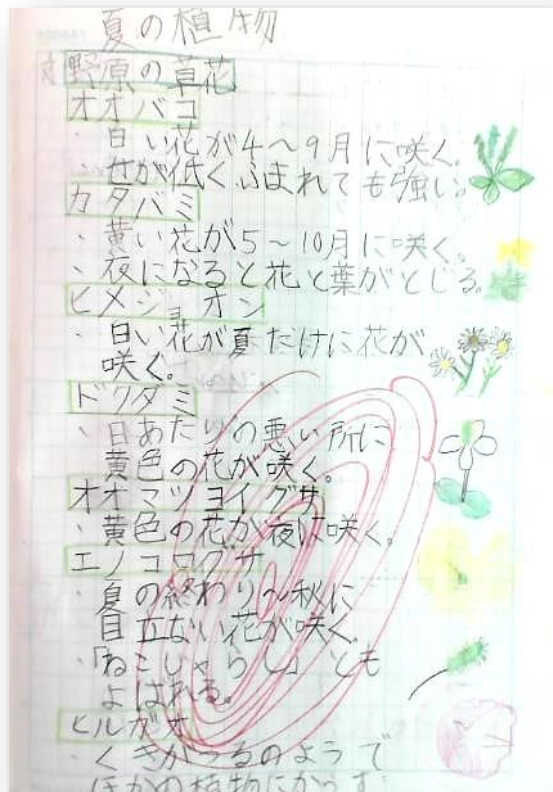 夏の植物
野原の草花
オオバコ
・白い花が4～9月に咲く。
・せが低くふまれても強い。
カタバミ
・黄い花が5～10月に咲く。
・夜になると花と葉がとじる。
ヒメジョオン
・白い花が夏だけに花が
咲く。
ドクダミ
・日あたりの悪い所に
黄色の花が咲く。
オオマツヨイグサ
・黄色の花が夜に咲く。
エノコログサ
・夏の終わり～秋に
目立ない花が咲く。
・「ねこじゃらし」とも
よばれる。
ヒルガオ
・くきがつるのようで
ほかの植物にからす